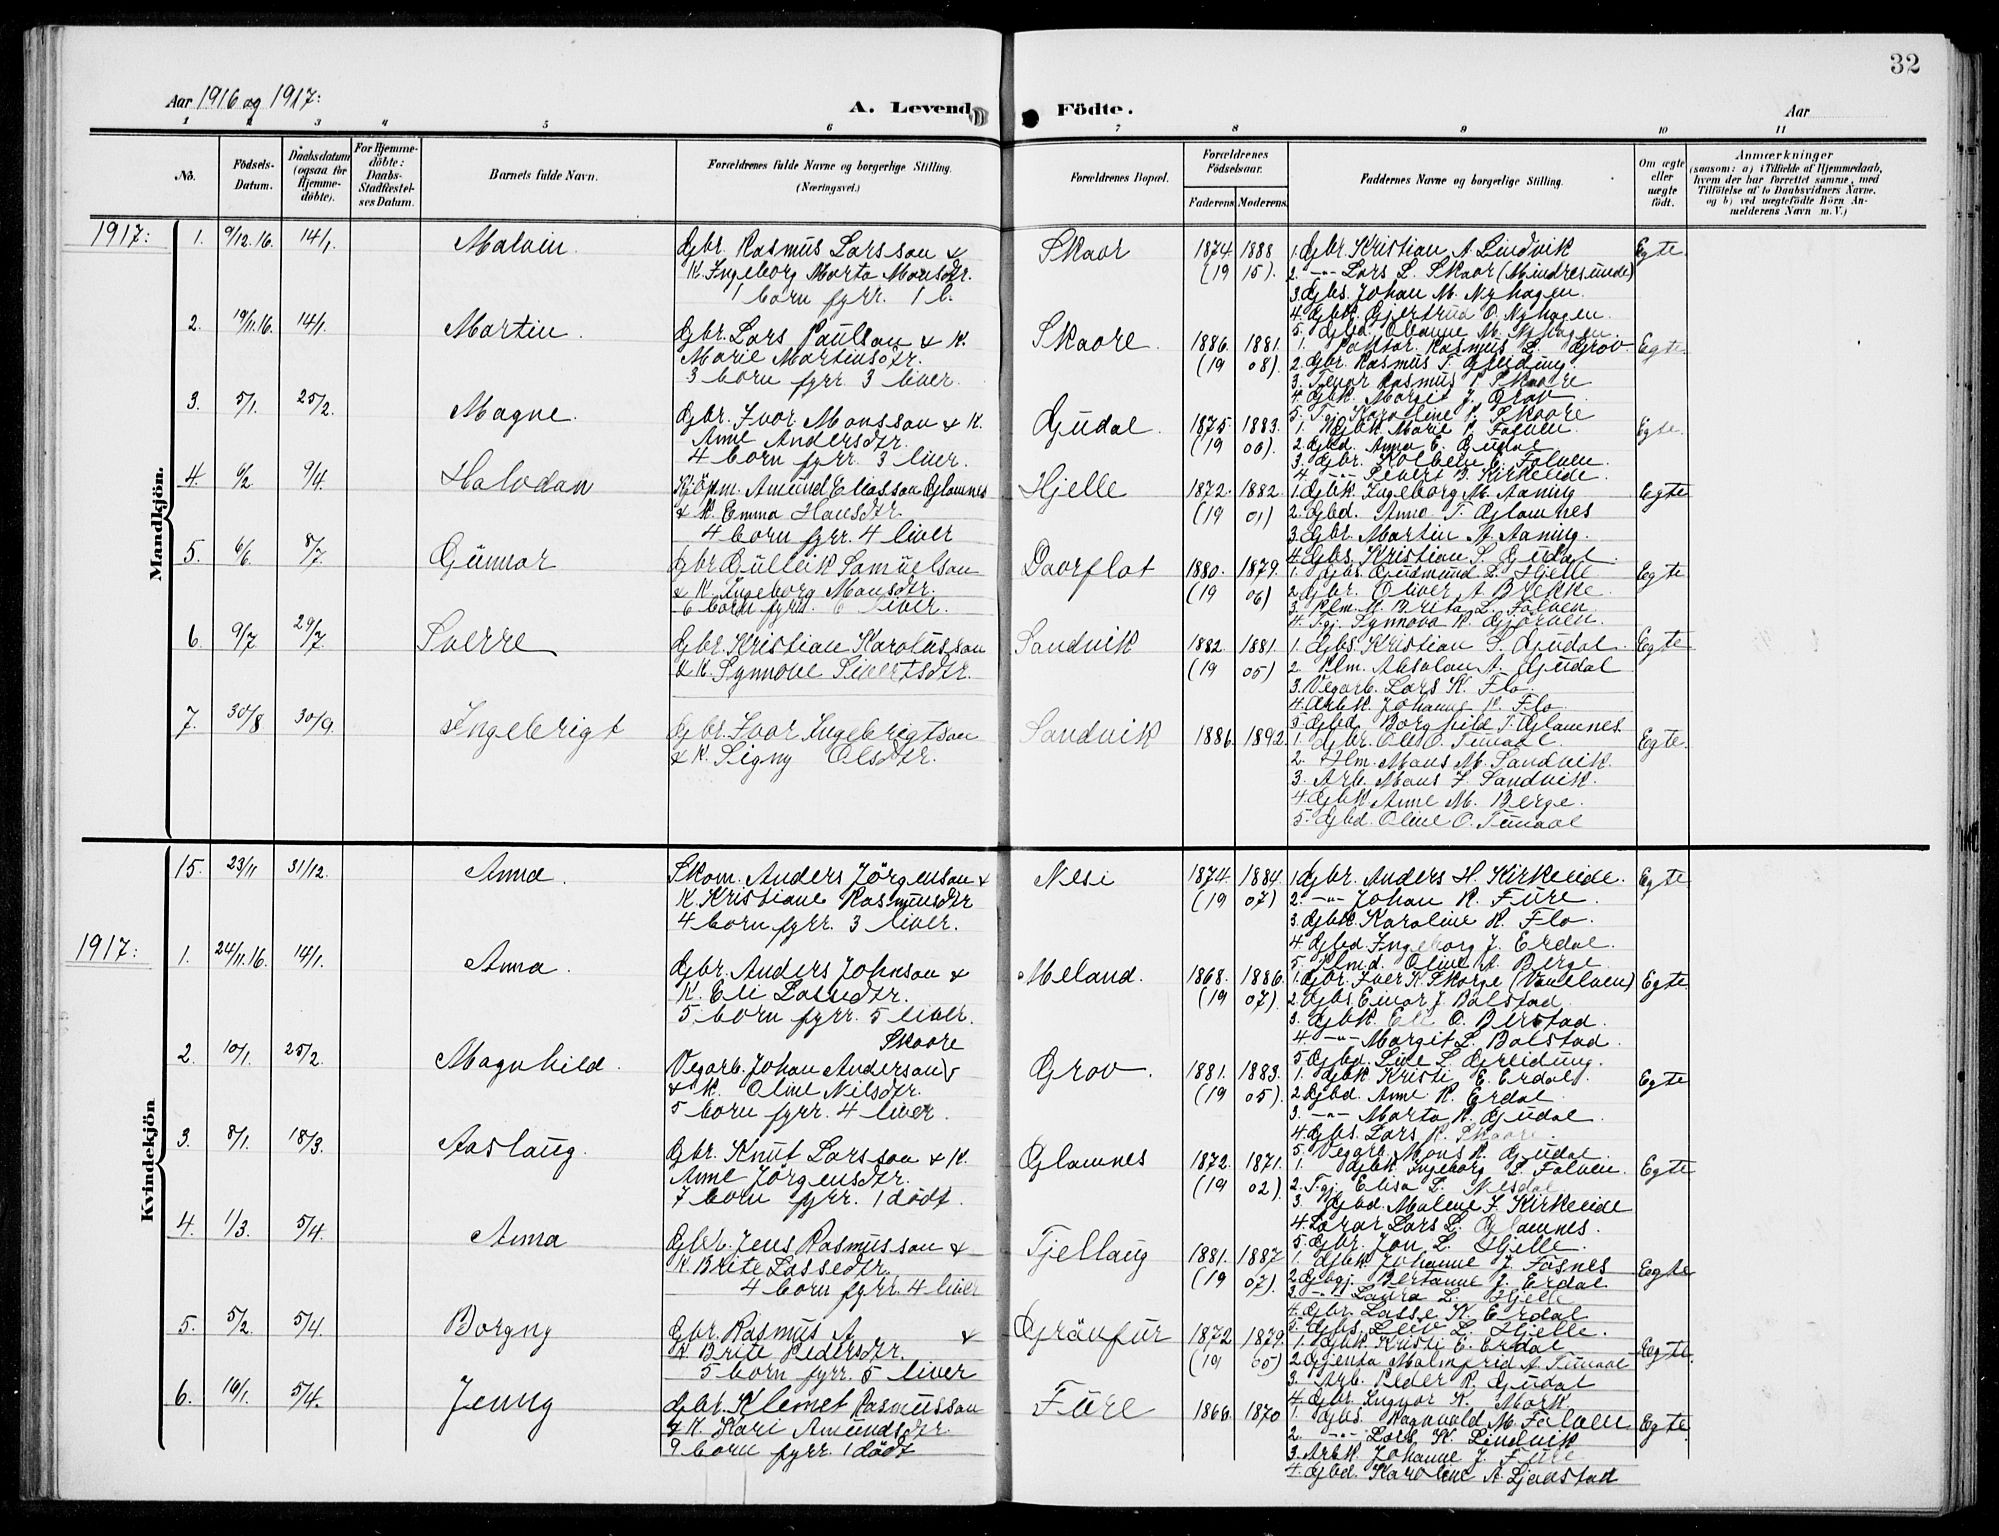 32
Aar 1916 og 1917:
A. Levend Födte.
Aar
1 2 3 4 5 6 7 8 9 10 11
No.
Födsels-Datum.
Daabsdatum (ogsaa for Hjemmedöbte).
For Hjemmedöbte: Daabs-Stadfæstelses Datum.
Barnets fulde Navn.
Forældrenes fulde Navne og borgerlige Stilling. (Næringsvei.)
Forældrenes Bopæl.
Forældrenes Födselsaar.
Faderens. Moderens.
Faddernes Navne og borgerlige Stilling.
Om ægte eller uægte födt.
Anmærkninger
(saasom: a) i Tilfælde af Hjemmedaab, hvem der har forrettet samme, med Tilföielse af to Daabsvidners Navne, og b) ved uægtefödte Börn Anmelderens Navn m. V.)
Mandkjön.
1917: 1. 9/12.16. 14/1. Malvin. Gbr. Rasmus Larsson & Skaar 1874. 1888 1. Gbr. Kristian A. Lindvik Egte.
K. Ingeborg Marta Monsdtr. (19 15). 2. -"- Lars L. Skaar (Mindresunde)
1 born fyrr. 1 l. 3. Gbs. Johan M. Nyhagen.
4. Gbk. Gjertrud O. Nyhagen.
5. Gbd. Olianne M. Nyhagen.
2. 19/11.16. 14/1. Martin. Gbr. Lars Paulson & K. Skaare. 1886. 1881. 1. Rasmus L. Grov. Egte.
Marie Martinsdtr. (19 08). 2. Gbr. Rasmus T. Greidung.
3 born fyrr. 3 liver. 3. Rasmus P. Skaare
4. Gbk. Margit J. Grov
5. Tgj. Karoline P. Skaare
3. 5/1. 25/2. Magne. Gbr. Ivar Monsson & K. Gjudal. 1875. 1883. 1. Gbk. Marie P. Folven. Egte.
Anne Andersdtr. (19 06). 2. Gbd. Anna E. Gjudal.
4 born fyrr. 3 liver. 3. Gbr. Kolbein E. Folven.
4. -"- Sivert B. Kirkeide
4. 6/2. 9/4. Halvdan Kjöpm. Amund Eliasson Glomnes Hjelle 1872. 1882. 1. Gbk. Ingeborg M. Aaning Egte
& K. Emma Hansdtr. (19 01) 2. Gbd. Anna T. Glomnes
4 born fyrr. 4 liver 3. Gbr. Martin A. Aaning.
4. Gbs. Kristian S. Gjudal
5. 6/6. 8/7. Gunnar Gbr. Gulleik Samuelson Daarflot 1880. 1879. 1. Gbs. Gudmund L. Hjelle Egte
& K. Ingeborg Monsdtr. (19 06) 2. Gbr. Oliver A. Brekke.
6 born fyrr. 6 liver. 3. Plm. M. Brita L. Folven.
4. Tgj. Synnøva K. Gjörven.
6. 9/7. 29/7. Sverre Gbr. Kristian Karolusson Sandvik 1882. 1881. 1. Gbs. Kristian S. Gjudal. Egte
& K. Synnove Sivertsdtr. (19 05) 2. Plm. Absalon A. Gjudal
3. Vegarb. Lars K. Flo.
4. Arbk. Johanne P. Flo.
5. Gbd. Borghild T. Glomnes
7. 30/8 30/9. Ingebrigt Gbr. Ivar Ingebrigtson Sandvik 1886. 1892. 1. Gbr. Ole O. Tunaal. Egte.
& K. Signy Olsdtr. 2. Hlm. Mons M. Sandvik.
3. Arb. Mons J. Sandvik.
4. Gbk. Anne M. Berge.
5. Gbd. Oline O. Tunaal
Kvindekjön
15. 23/11 31/12. Anna. Skom. Anders Jörgenson & Nesi 1874. 1884 1. Gbr. Anders H. Kirkeide. Egte
K. Kristiane Rasmusdtr (19 07) 2. -"- Johan R. Fure.
4 born fyrr. 3 liver. 3. Gbk. Karoline R. Flo.
4. Gbd. Ingeborg J. Erdal.
5. Plmd. Oline A. Berge.
1917: 1. 24/11.16. 14/1. Anna. Gbr. Anders Johnson & Meland. 1868. 1886. 1. Gbr. Iver K. Skorge Egte.
K. Eli Lassedtr. (19 07) 2. Gbs. Einar J. Bolstad.
5 born fyrr. 5 liver. 3. Gbk. Eli O. Berstad.
4. -"- Margit L. Bolstad.
5. Gbd. Sine L. Greidung.
2. 10/1. 25/2. Magnhild. Vegarb. Johan Anderson Skaare Grov. 1881. 1883. 1. Gbk. Kristi E. Erdal. Egte
& K. Oline Nilsdtr. (19 05). 2. Gbd. Anne K. Erdal.
5 born fyrr. 4 liver. 3. -"- Marta K. Gjudal.
4. Gbs. Lars R. Skaare.
5. Vegarb. Mons K. Gjudal.
3. 8/1. 18/3. Aaslaug. Gbr. Knut Larsson & K. Glomnes 1872. 1871. 1. Gbk. Ingeborg L. Folven. Egte
Anne Jörgensdtr. (19 02). 2. Tgj. Elisa L. Nesdal
7 born fyrr. 1 dödt. 3. Gbd. Malene J. Kirkeide
4. Lærar Lars L. Glomnes.
5. Gbr. Jon L. Hjelle.
4. 1/3. 5/4. Anna Gbr. Jens Rasmusson & Tjellaug 1881. 1887 1. Gbk. Johanne J. Fosnes Egte
K. Brite Lassedtr. (19 07). 2. Gbgj. Bertanne J. Erdal
4 born fyrr. 4 liver 3. -"- Laura L. Hjelle
4. Gbr. Lasse K. Erdal
5. Gbs. Leiv L. Hjelle.
5. 5/2. 5/4. Borgny Gbr. Rasmus A. & Grönfur 1872. 1879. 1. Gbk. Kristi E. Erdal Egte.
K. Brite Pedersdtr. (19 05) 2. Gjenta Malmfrid A. Tunaal
5 born fyrr. 5 liver 3. Arb. Peder R. Gjudal
4. Gbr. Ingvar K. Mork.
6. 16/1. 5/4. Jenny Gbr. Klemet Rasmusson Fure 1866. 1870 1. Gbs. Ragnvald M. Folven Egte
& K. Kari Amundsdtr. 2. -"- Lars K. Lindvik
9 born fyrr. 1 dödt 3. Arbk. Johanne J. Fure
4. Gbd. Karoline A. Ljødstad